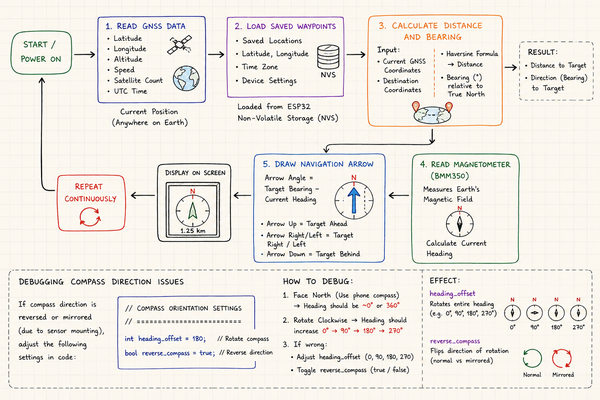 START /
POWER ON
1. READ GNSS DATA
• Latitude
• Longitude
• Altitude
• Speed
• Satellite Count
• UTC Time
Current Position
(Anywhere on Earth)
2. LOAD SAVED WAYPOINTS
• Saved Locations
• Latitude, Longitude
• Time Zone
• Device Settings
NVS
Loaded from ESP32
Non-Volatile Storage (NVS)
3. CALCULATE DISTANCE
AND BEARING
Input:
• Current GNSS
Coordinates
• Destination
Coordinates
• Haversine Formula
→ Distance
• Bearing (°)
relative to
True North
RESULT:
• Distance to Target
• Direction (Bearing)
to Target
4. READ MAGNETOMETER
(BMM350)
Measures Earth's
Magnetic Field
N
Calculate Current
Heading
5. DRAW NAVIGATION ARROW
Arrow Angle =
Target Bearing –
Current Heading
N
• Arrow Up = Target Ahead
• Arrow Right/Left = Target
Right / Left
• Arrow Down = Target Behind
DISPLAY ON SCREEN
N
1.25 km
REPEAT
CONTINUOUSLY
DEBUGGING COMPASS DIRECTION ISSUES
If compass direction is
reversed or mirrored
(due to sensor mounting),
adjust the following
settings in code:
// COMPASS ORIENTATION SETTINGS
// =========================
int heading_offset = 180; // Rotate compass
bool reverse_compass = true; // Reverse direction
HOW TO DEBUG:
1. Face North (Use phone compass)
→ Heading should be ~0° or 360°
2. Rotate Clockwise → Heading should
increase 0° → 90° → 180° → 270°
3. If wrong:
• Adjust heading_offset (0, 90, 180, 270)
• Toggle reverse_compass (true / false)
EFFECT:
heading_offset
Rotates entire heading
(e.g. 0°, 90°, 180°, 270°)
N N N N
0° 90° 180° 270°
reverse_compass
Flips direction of rotation
(normal vs mirrored)
Normal Mirrored